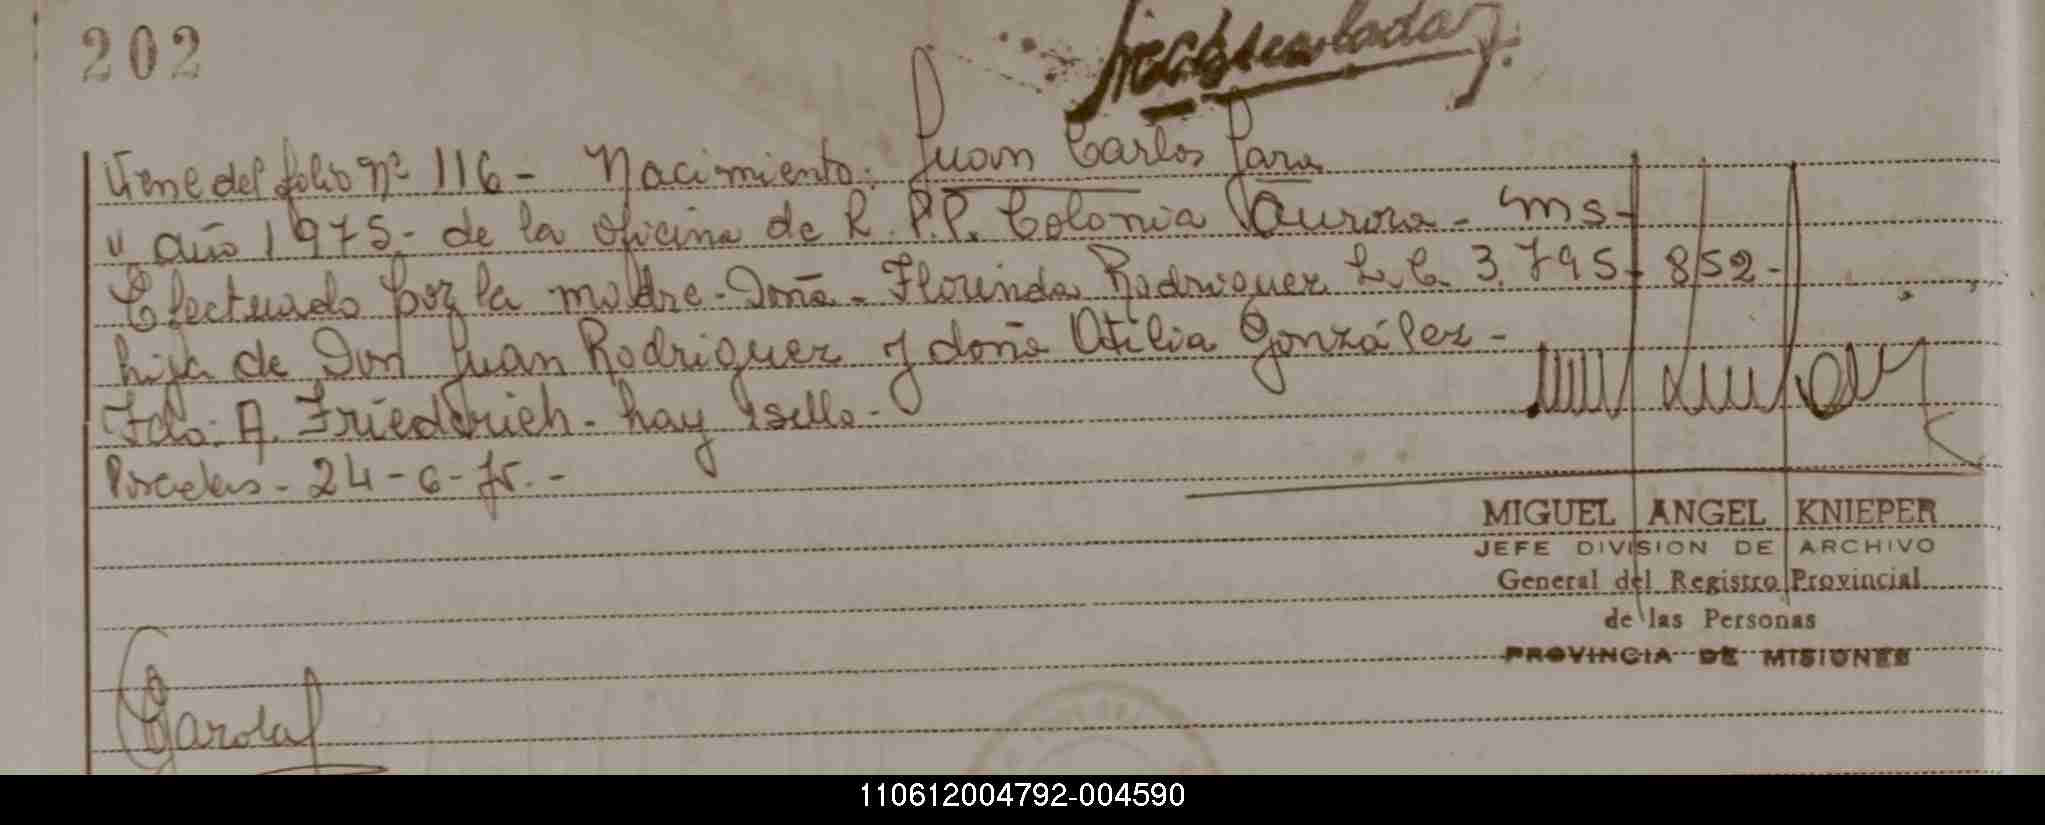 202
Viene del folio nº 116 - Nacimiento: Juan Carlos Jara
" año 1975.- de la oficina de R. P.P. Colonia Aurora - Ms -
Efectuado por la madre - Doña - Florinda Rodriguez L.C. 3.795.852 -
hija de Don Juan Rodriguez y doña Otilia González -
Fdo: A. Friederich - hay 1 sello -
Posadas - 24-6-75.-
MIGUEL ANGEL KNIEPER
JEFE DIVISION DE ARCHIVO
General del Registro Provincial
de las Personas
PROVINCIA DE MISIONES
110612004792-004590